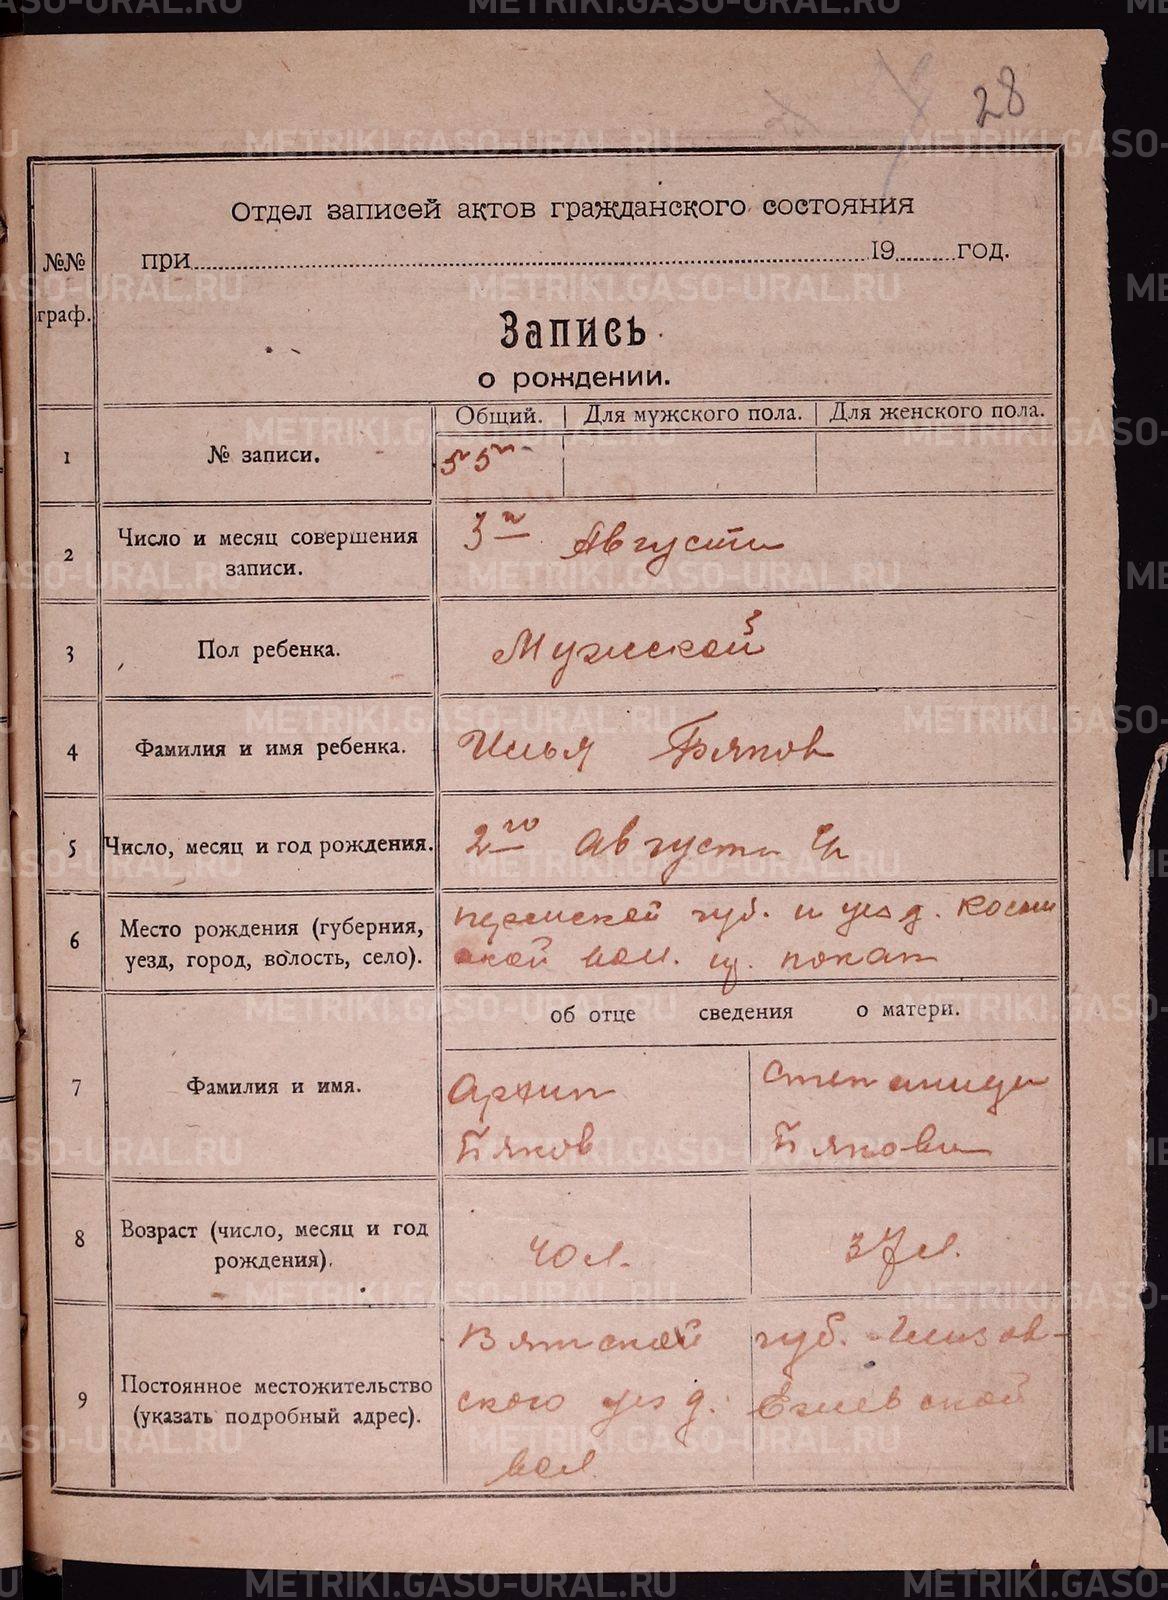 28
Отдел записей актов гражданского состояния
при 19 год.
№№ граф.
Запись
о рождении.
Общий. Для мужского пола. Для женского пола.
1 № записи. 55
2 Число и месяц совершения записи. 3го Августа
3 Пол ребенка. Мужской
4 Фамилия и имя ребенка. Илья Бяков
5 Число, месяц и год рождения. 2го августа
6 Место рождения (губерния, пермской губ. и уезд.
уезд, город, волость, село). ской вол.
об отце сведения о матери.
7 Фамилия и имя. Архип Степанида
Бяков Бякова
8 Возраст (число, месяц и год рождения). 40 л. 37 л.
9 Постоянное местожительство Вятской губ.
(указать подробный адрес). ского уезд.
вол.
METRIKI.GASO-URAL.RU